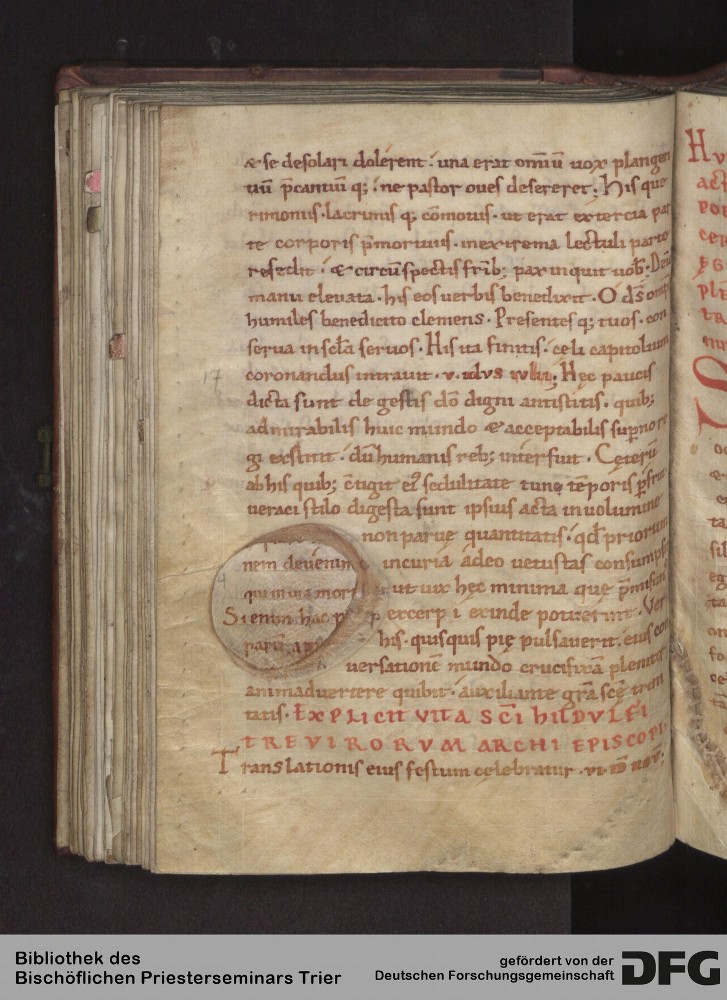 & se desolari dolerent. una erat omniū uox plangen
tiū p̄cantiū q;. ne pastor oues desereret. His que
rimoniis. lacrimis q; cōmotus. ut erat ex tercia par
te corporis p̄mortuus. in extrema lectuli parte
resedit. & circūspectis frīb; pax inquit uob̄. Deīn
manu eleuata. his eos uerbis benedixit. O d̄s omp̄s
humiles benedicito clemens. Presentes q; tuos. con
serua in sc̄la seruos. His ita finitis. celi capitolium
coronandus intrauit. v. idvs iulii. Hęc paucis
dicta sunt de gestis dō digni antistitis. quib;
admirabilis huic mundo & acceptabilis supno re
gi exstitit. dū humanis reb; interfuit. Cęterū
ab his quib; c̄tigit ei᾽ sedulitate tunc tēporis p̄frui
ueraci stilo digesta sunt ipsius acta in uolumine
non paruę quantitatis. qđ priorum
nem deuenim incuria adeo uetustas consumpsit
qui in uia mort ut uix hęc minima que p̄misimus
Si enim hac p excerp i exinde potuerint. Ver
his. quisquis pię pulsauerit. eius con
uersationē mundo crucifixā plenius
animaduertere quibit. auxiliante gr̄a scę trini
tatis. EXPLICIT VITA SC̄I HILDVLFI
TREVIRORVM ARCHIEPISCOPI.
Translationis eius festum cęlebratur. vi. id nov̄.
17
Bibliothek des
Bischöflichen Priesterseminars Trier
gefördert von der
Deutschen Forschungsgemeinschaft
DFG